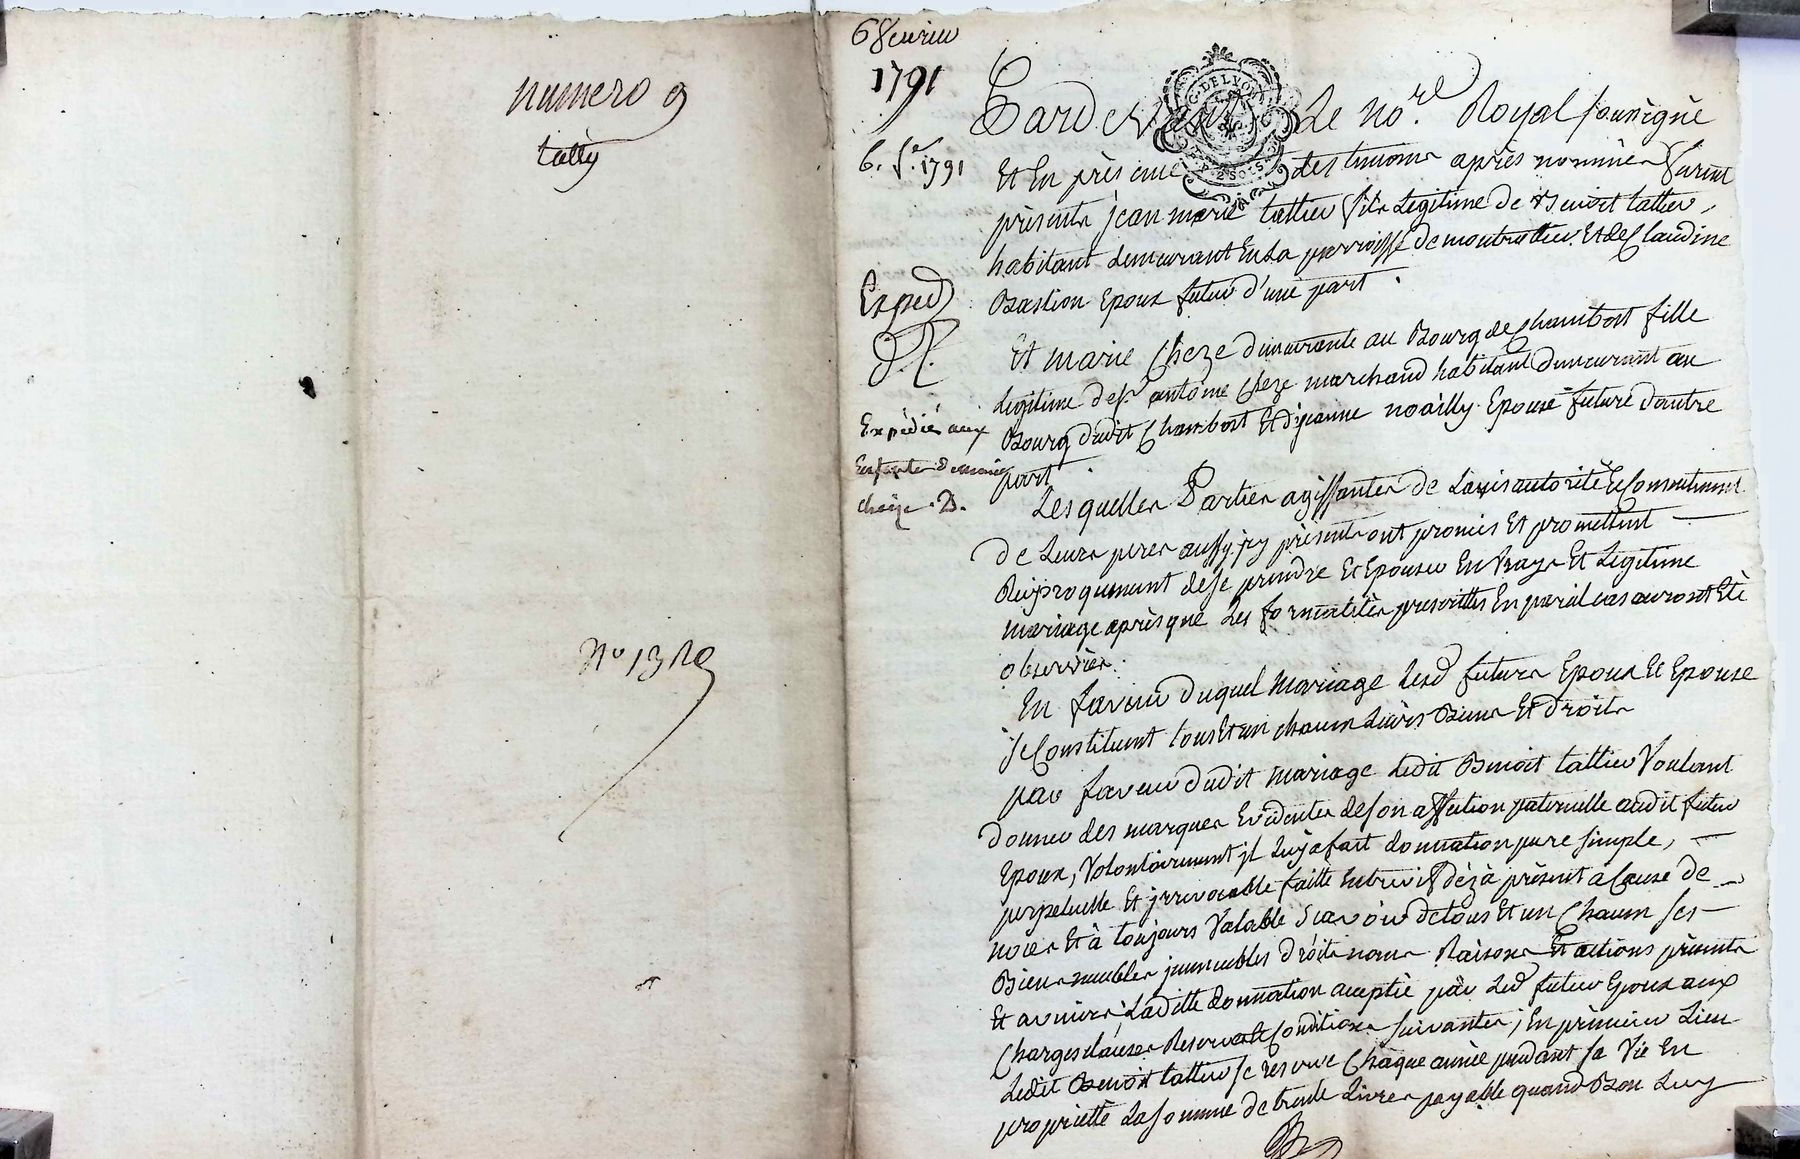 numero 9
tally
6 février
1791
6. f.er 1791
Exped
Expédié aux
Enfants de marie
cheze. D.
Pardevant Le no.re Royal soussigné
Et En présence des temoins après nommés furent
présents jean marie tattier fils Légitime de Benoit tattier,
habitant demeurant En La parroisse de montrottier Et de Claudine
Bastion Epoux futur d'une part.
Et marie Cheze demeurante au Bourg de Chambost fille
Légitime de Sr antoine Cheze marchand habitant demeurant au
Bourg dudit Chambost Et de jeanne noailly Epouse future d'autre
part.
Lesquelles Parties agissantes de L'avis autorité Et Consentement
de Leurs peres aussy jcy présents ont promis Et promettent
Réciproquement de se prendre Et Epouser En Vray Et Légitime
mariage après que Les formalités prescrittes En pareil cas auront Eté
observées.
En faveur duquel mariage Lesd futurs Epoux Et Epouse
se Constituent tous Et un chacun Leurs Biens Et droits
par faveur dudit mariage Ledit Benoit tattier Voulant
donner des marques Evidentes de son affection paternelle audit futur
Epoux, Volontairement jl Luy a fait donnation pure simple,
perpetuelle Et jrrevocable faitte Entrevifs dèz à présent à Cause de
noces Et à toujours Valable Scavoir de tous Et un Chacun ses
Biens meubles jmmeubles droits noms Raisons Et actions présents
Et avenirs; Laditte donnation acceptée par Led futur Epoux aux
Charges clauses Reserves Et Conditions suivantes; En prémier Lieu
Ledit Benoit tattier se réserve Chaque année pendant sa Vie En
proprieté La somme de trente Livres payable quand Bon Luy